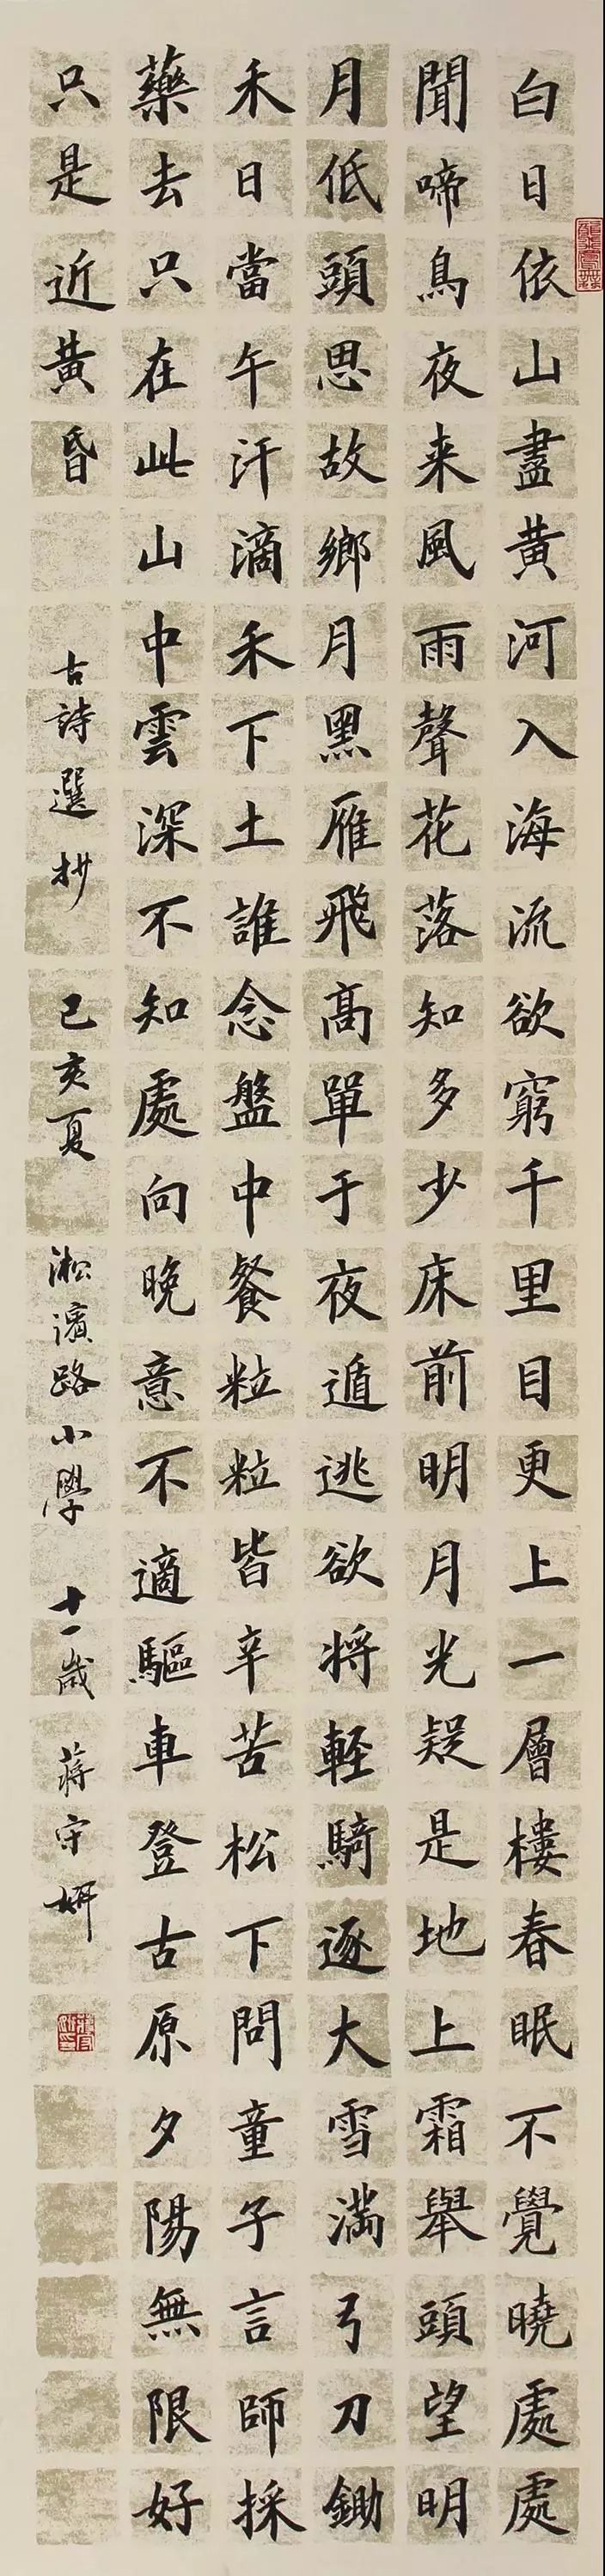 白日依山盡黄河入海流欲窮千里目更上一層樓春眠不覺曉處處
聞啼鳥夜来風雨聲花落知多少床前明月光疑是地上霜舉頭望明
月低頭思故鄉月黑雁飛髙單于夜遁逃欲将軽騎逐大雪滿弓刀鋤
禾日當午汗滴禾下土誰念盤中餐粒粒皆辛苦松下問童子言師採
藥去只在此山中雲深不知處向晚意不適驅車登古原夕陽無限好
只是近黄昏 古詩選抄 己亥夏 淞濱路小學 十一歲 蔣守妍